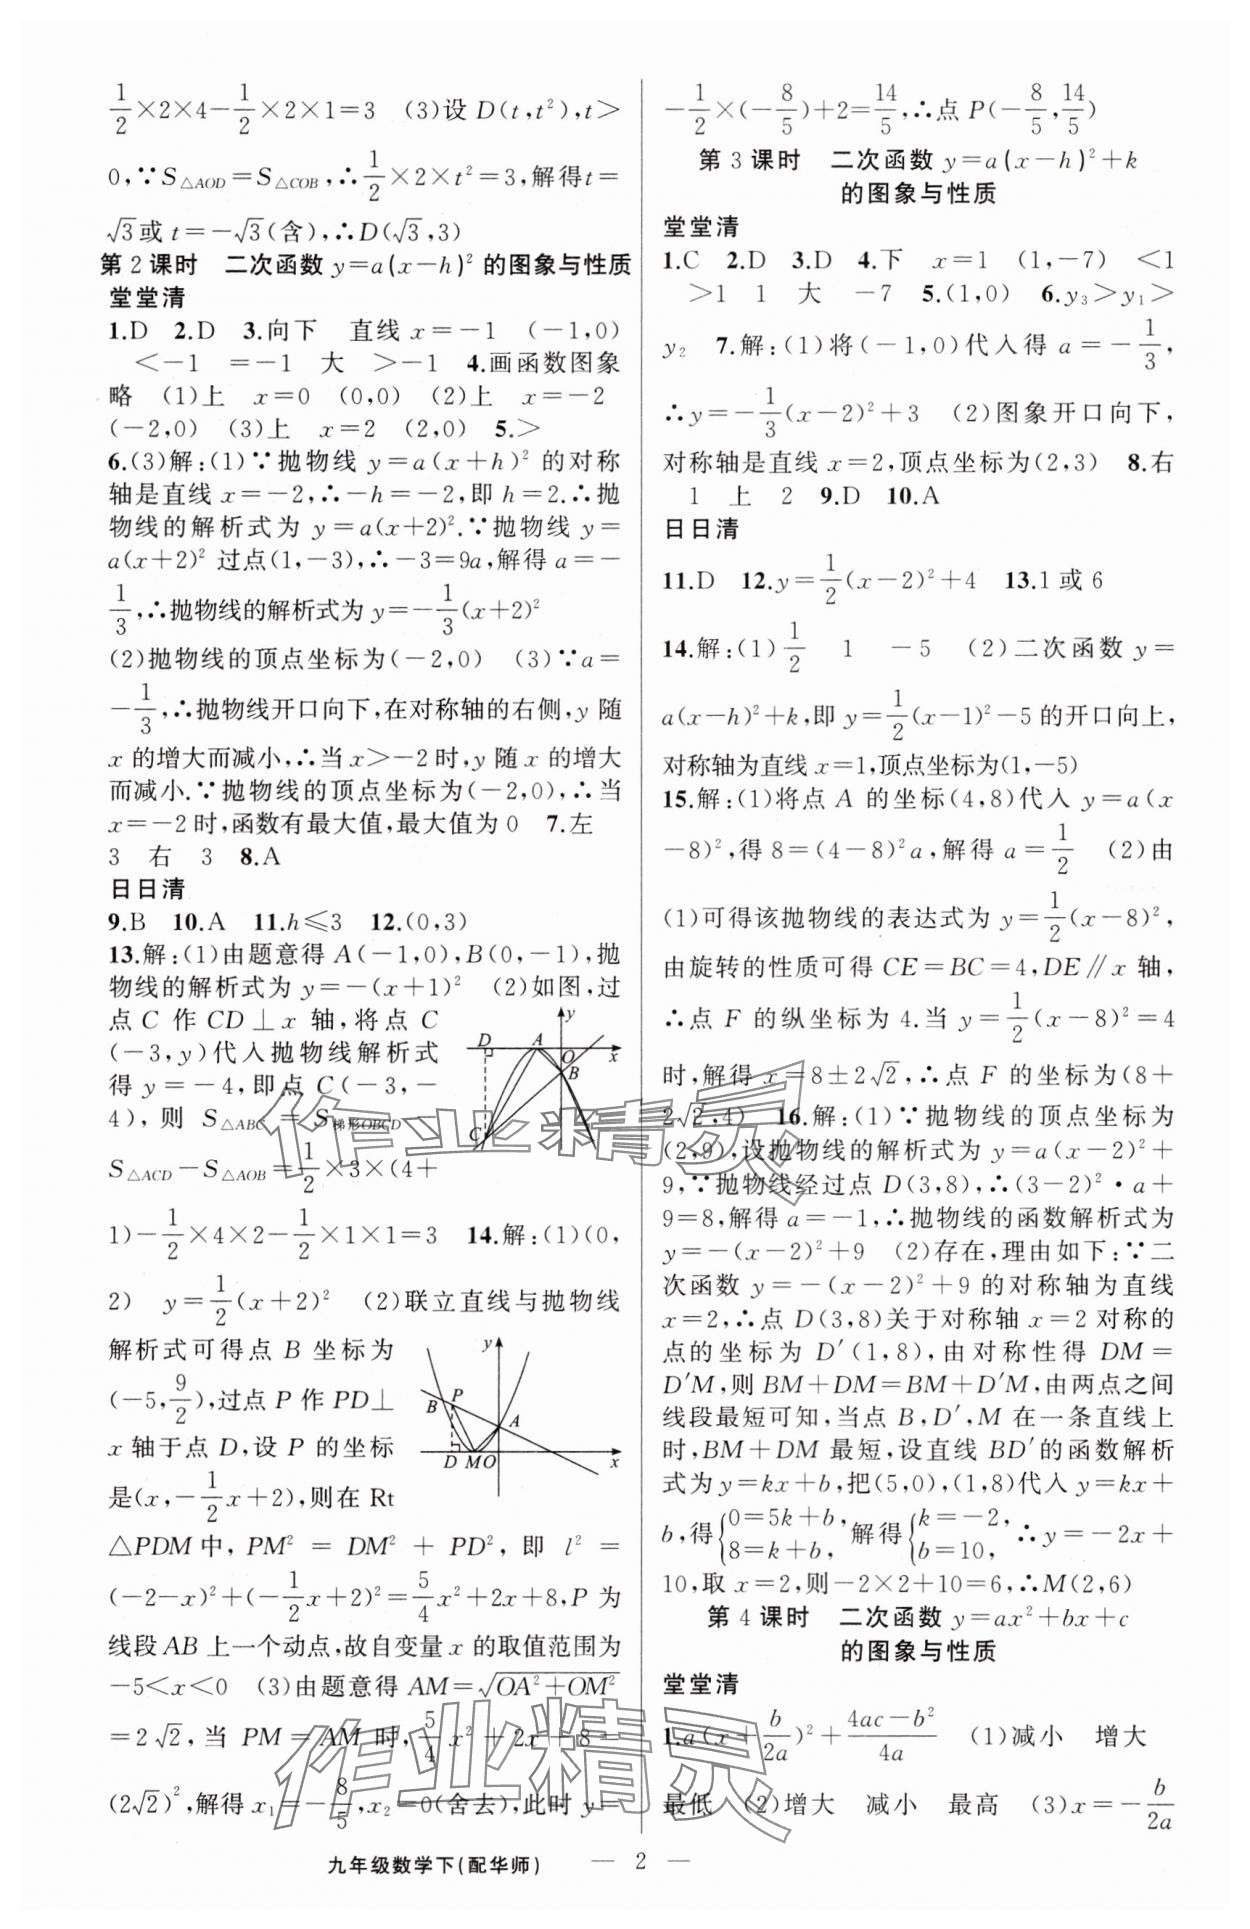 1/2×2×4-1/2×2×1=3 (3)设 D(t,t²),t>
0,∵S△AOD=S△COB,∴1/2×2×t²=3,解得t=
√3或 t=-√3(含),∴D(√3,3)
第 2 课时 二次函数 y=a(x-h)² 的图象与性质
堂堂清
1.D 2.D 3.向下 直线 x=-1 (-1,0)
<-1 =-1 大 >-1 4.画函数图象
略 (1)上 x=0 (0,0) (2)上 x=-2
(-2,0) (3)上 x=2 (2,0) 5.>
6.(3)解:(1)∵抛物线 y=a(x+h)² 的对称
轴是直线 x=-2,∴-h=-2,即 h=2.∴抛
物线的解析式为 y=a(x+2)².∵抛物线 y=
a(x+2)² 过点(1,-3),∴-3=9a,解得 a=-
1/3,∴抛物线的解析式为 y=-1/3(x+2)²
(2)抛物线的顶点坐标为(-2,0) (3)∵a=
-1/3,∴抛物线开口向下,在对称轴的右侧,y 随
x 的增大而减小,∴当 x>-2 时,y 随 x 的增大
而减小.∵抛物线的顶点坐标为(-2,0),∴当
x=-2 时,函数有最大值,最大值为 0 7.左
3 右 3 8.A
日日清
9.B 10.A 11.h≤3 12.(0,3)
13.解:(1)由题意得 A(-1,0),B(0,-1),抛
物线的解析式为 y=-(x+1)² (2)如图,过
点 C 作 CD⊥x 轴,将点 C
(-3,y)代入抛物线解析式
得 y=-4,即点 C(-3,-
4),则 S△ABC=S梯形OBCD-
S△ACD-S△AOB=1/2×3×(4+
1)-1/2×4×2-1/2×1×1=3 14.解:(1)(0,
2) y=1/2(x+2)² (2)联立直线与抛物线
解析式可得点 B 坐标为
(-5,9/2),过点 P 作 PD⊥
x 轴于点 D,设 P 的坐标
是(x,-1/2x+2),则在 Rt
△PDM 中,PM²=DM²+PD²,即 l²=
(-2-x)²+(-1/2x+2)²=5/4x²+2x+8,P 为
线段 AB 上一个动点,故自变量 x 的取值范围为
-5<x<0 (3)由题意得 AM=√(OA²+OM²)
=2√2,当 PM=AM 时,5/4x²+2x+8=
(2√2)²,解得 x₁=-8/5,x₂=0(舍去),此时 y=
D A O B C x y
B P A D M O x y
-1/2×(-8/5)+2=14/5,∴点 P(-8/5,14/5)
第 3 课时 二次函数 y=a(x-h)²+k
的图象与性质
堂堂清
1.C 2.D 3.D 4.下 x=1 (1,-7) <1
>1 1 大 -7 5.(1,0) 6.y₃>y₁>
y₂ 7.解:(1)将(-1,0)代入得 a=-1/3,
∴y=-1/3(x-2)²+3 (2)图象开口向下,
对称轴是直线 x=2,顶点坐标为(2,3) 8.右
1 上 2 9.D 10.A
日日清
11.D 12.y=1/2(x-2)²+4 13.1 或 6
14.解:(1)1/2 1 -5 (2)二次函数 y=
a(x-h)²+k,即 y=1/2(x-1)²-5 的开口向上,
对称轴为直线 x=1,顶点坐标为(1,-5)
15.解:(1)将点 A 的坐标(4,8)代入 y=a(x
-8)²,得 8=(4-8)²a,解得 a=1/2 (2)由
(1)可得该抛物线的表达式为 y=1/2(x-8)²,
由旋转的性质可得 CE=BC=4,DE∥x 轴,
∴点 F 的纵坐标为 4.当 y=1/2(x-8)²=4
时,解得 x=8±2√2,∴点 F 的坐标为(8+
2√2,4) 16.解:(1)∵抛物线的顶点坐标为
(2,9),设抛物线的解析式为 y=a(x-2)²+
9,∵抛物线经过点 D(3,8),∴(3-2)²·a+
9=8,解得 a=-1,∴抛物线的函数解析式为
y=-(x-2)²+9 (2)存在,理由如下:∵二
次函数 y=-(x-2)²+9 的对称轴为直线
x=2,∴点 D(3,8)关于对称轴 x=2 对称的
点的坐标为 D′(1,8),由对称性得 DM=
D′M,则 BM+DM=BM+D′M,由两点之间
线段最短可知,当点 B,D′,M 在一条直线上
时,BM+DM 最短,设直线 BD′的函数解析
式为 y=kx+b,把(5,0),(1,8)代入 y=kx+
b,得{0=5k+b, 8=k+b, 解得{k=-2, b=10, ∴y=-2x+
10,取 x=2,则-2×2+10=6,∴M(2,6)
第 4 课时 二次函数 y=ax²+bx+c
的图象与性质
堂堂清
1.a(x+b/2a)²+(4ac-b²)/4a (1)减小 增大
最低 (2)增大 减小 最高 (3)x=-b/2a
九年级数学下(配华师) — 2 —
作业精灵
作业精灵